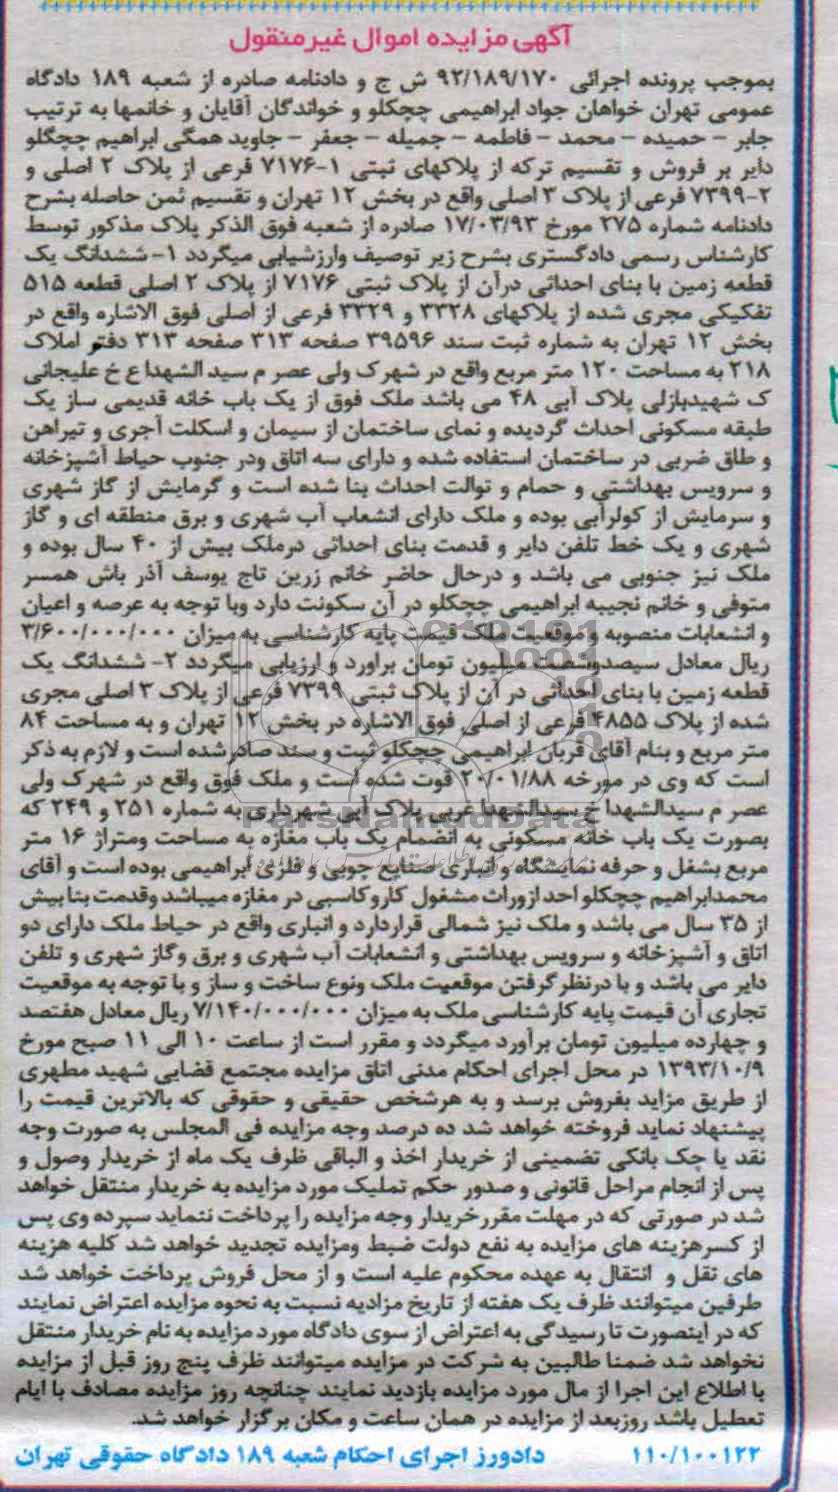 آگهی مزایده اموال غیرمنقول
بموجب پرونده اجرائی ۹۲/۱۸۹/۱۷۰ ش ج و دادنامه صادره از شعبه ۱۸۹ دادگاه
عمومی تهران خواهان جواد ابراهیمی چچکلو و خواندگان آقایان و خانمها به ترتیب
جابر – حمیده – محمد – فاطمه – جمیله – جعفر – جاوید همگی ابراهیم چچگلو
دایر بر فروش و تقسیم ترکه از پلاکهای ثبتی ۱-۷۱۷۶ فرعی از پلاک ۲ اصلی و
۲-۷۳۹۹ فرعی از پلاک ۳ اصلی واقع در بخش ۱۲ تهران و تقسیم ثمن حاصله بشرح
دادنامه شماره ۲۷۵ مورخ ۱۷/۰۳/۹۳ صادره از شعبه فوق الذکر پلاک مذکور توسط
کارشناس رسمی دادگستری بشرح زیر توصیف وارزشیابی میگردد ۱- ششدانگ یک
قطعه زمین با بنای احداثی درآن از پلاک ثبتی ۷۱۷۶ از پلاک ۲ اصلی قطعه ۵۱۵
تفکیکی مجری شده از پلاکهای ۳۳۲۸ و ۳۳۲۹ فرعی از اصلی فوق الاشاره واقع در
بخش ۱۲ تهران به شماره ثبت سند ۳۹۵۹۶ صفحه ۳۱۳ صفحه ۳۱۳ دفتر املاک
۲۱۸ به مساحت ۱۲۰ متر مربع واقع در شهرک ولی عصر م سید الشهداع خ علیجانی
ک شهیدبازلی پلاک آبی ۴۸ می باشد ملک فوق از یک باب خانه قدیمی ساز یک
طبقه مسکونی احداث گردیده و نمای ساختمان از سیمان و اسکلت آجری و تیراهن
و طاق ضربی در ساختمان استفاده شده و دارای سه اتاق ودر جنوب حیاط آشپزخانه
و سرویس بهداشتی و حمام و توالت احداث بنا شده است و گرمایش از گاز شهری
و سرمایش از کولرآبی بوده و ملک دارای انشعاب آب شهری و برق منطقه ای و گاز
شهری و یک خط تلفن دایر و قدمت بنای احداثی درملک بیش از ۴۰ سال بوده و
ملک نیز جنوبی می باشد و درحال حاضر خانم زرین تاج یوسف آذر باش همسر
متوفی و خانم نجیبه ابراهیمی چچکلو در آن سکونت دارد وبا توجه به عرصه و اعیان
و انشعابات منصوبه و موقعیت ملک قیمت پایه کارشناسی به میزان ۳/۶۰۰/۰۰۰/۰۰۰
ریال معادل سیصدوشصت میلیون تومان براورد و ارزیابی میگردد ۲- ششدانگ یک
قطعه زمین با بنای احداثی در آن از پلاک ثبتی ۷۳۹۹ فرعی از پلاک ۳ اصلی مجری
شده از پلاک ۴۸۵۵ فرعی از اصلی فوق الاشاره در بخش ۱۲ تهران و به مساحت ۸۴
متر مربع و بنام آقای قربان ابراهیمی چچکلو ثبت و سند صادر شده است و لازم به ذکر
است که وی در مورخه ۲۰/۰۱/۸۸ فوت شده است و ملک فوق واقع در شهرک ولی
عصر م سیدالشهدا خ سیدالشهدا غربی پلاک آبی شهرداری به شماره ۲۵۱ و ۲۴۹ که
بصورت یک باب خانه مسکونی به انضمام یک باب مغازه به مساحت ومتراژ ۱۶ متر
مربع بشغل و حرفه نمایشگاه و انباری صنایع چوبی و فلزی ابراهیمی بوده است و آقای
محمدابراهیم چچکلو احد ازوراث مشغول کاروکاسبی در مغازه میباشد وقدمت بنا بیش
از ۳۵ سال می باشد و ملک نیز شمالی قراردارد و انباری واقع در حیاط ملک دارای دو
اتاق و آشپزخانه و سرویس بهداشتی و انشعابات آب شهری و برق وگاز شهری و تلفن
دایر می باشد و با درنظرگرفتن موقعیت ملک ونوع ساخت و ساز و با توجه به موقعیت
تجاری آن قیمت پایه کارشناسی ملک به میزان ۷/۱۴۰/۰۰۰/۰۰۰ ریال معادل هفتصد
و چهارده میلیون تومان برآورد میگردد و مقرر است از ساعت ۱۰ الی ۱۱ صبح مورخ
۱۳۹۳/۱۰/۹ در محل اجرای احکام مدنی اتاق مزایده مجتمع قضایی شهید مطهری
از طریق مزاید بفروش برسد و به هرشخص حقیقی و حقوقی که بالاترین قیمت را
پیشنهاد نماید فروخته خواهد شد ده درصد وجه مزایده فی المجلس به صورت وجه
نقد یا چک بانکی تضمینی از خریدار اخذ و الباقی ظرف یک ماه از خریدار وصول و
پس از انجام مراحل قانونی و صدور حکم تملیک مورد مزایده به خریدار منتقل خواهد
شد در صورتی که در مهلت مقررخریدار وجه مزایده را پرداخت ننماید سپرده وی پس
از کسرهزینه های مزایده به نفع دولت ضبط ومزایده تجدید خواهد شد کلیه هزینه
های نقل و انتقال به عهده محکوم علیه است و از محل فروش پرداخت خواهد شد
طرفین میتوانند ظرف یک هفته از تاریخ مزادیه نسبت به نحوه مزایده اعتراض نمایند
که در اینصورت تا رسیدگی به اعتراض از سوی دادگاه مورد مزایده به نام خریدار منتقل
نخواهد شد ضمنا طالبین به شرکت در مزایده میتوانند ظرف پنج روز قبل از مزایده
با اطلاع این اجرا از مال مورد مزایده بازدید نمایند چنانچه روز مزایده مصادف با ایام
تعطیل باشد روزبعد از مزایده در همان ساعت و مکان برگزار خواهد شد.
۱۱۰/۱۰۰۱۲۲ دادورز اجرای احکام شعبه ۱۸۹ دادگاه حقوقی تهران
ParsNamadData